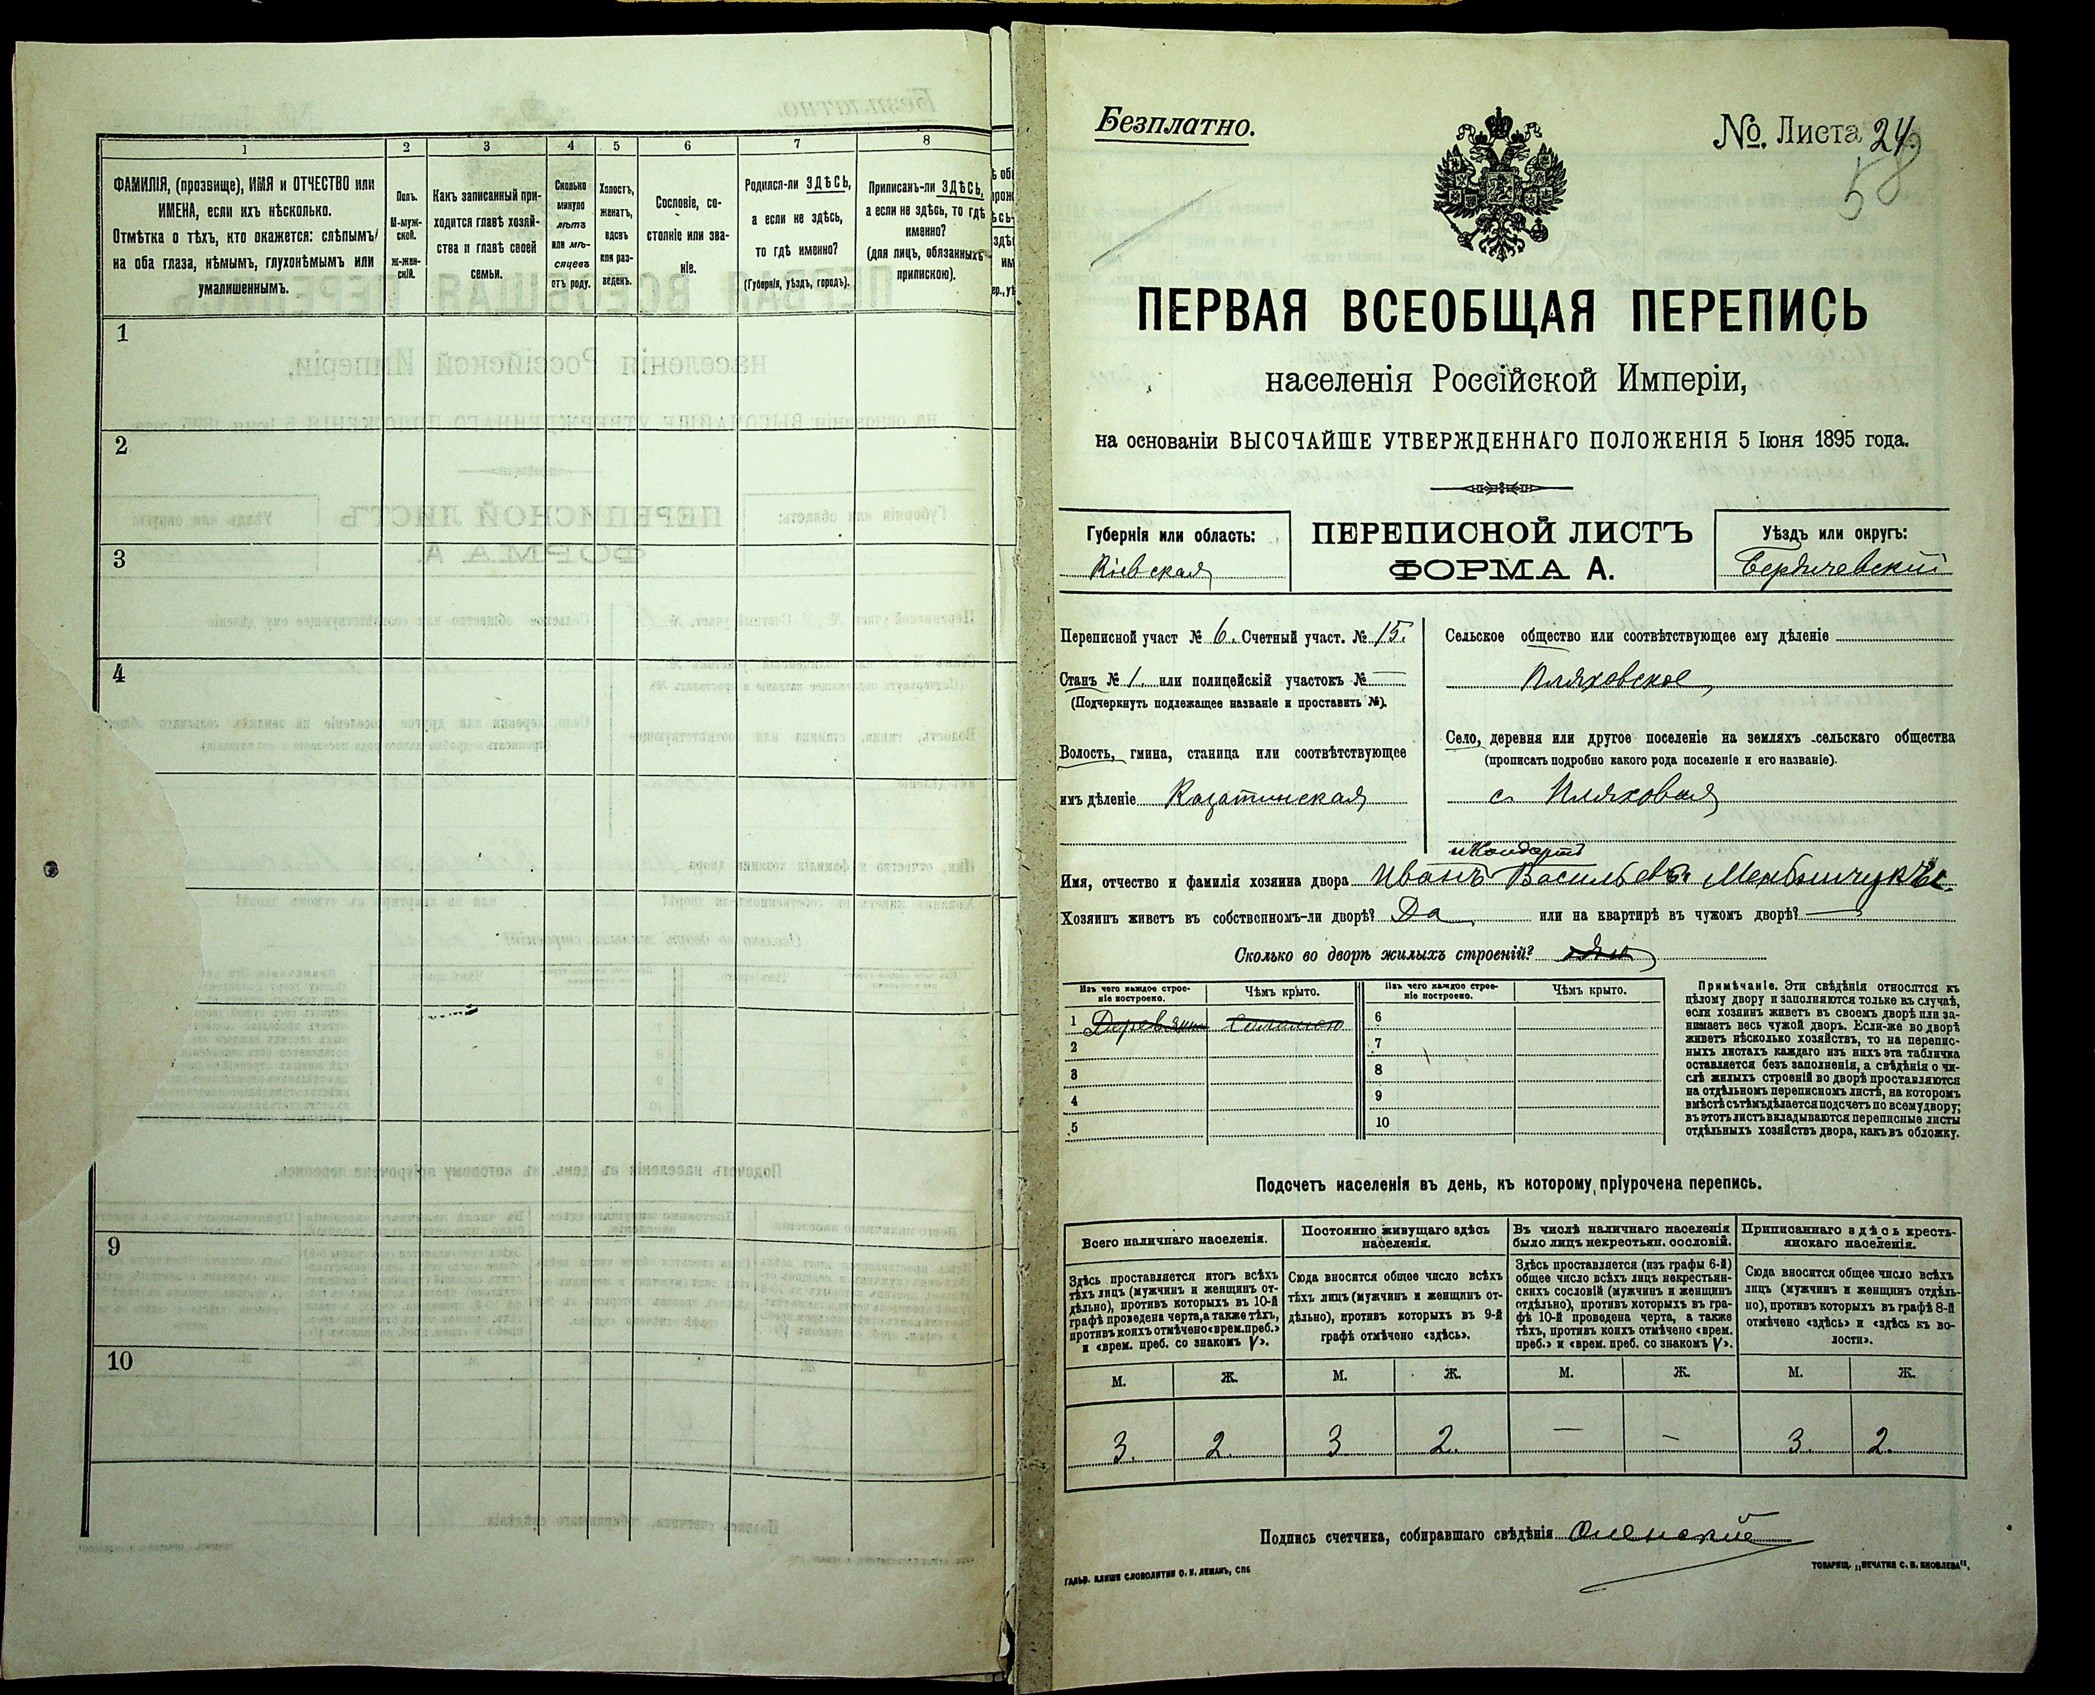 1
2
3
4
5
6
7
8
ФАМИЛІЯ, (прозвище), ИМЯ и ОТЧЕСТВО или
ИМЕНА, если ихъ нѣсколько.
Отмѣтка о тѣхъ, кто окажется: слѣпымъ
на оба глаза, нѣмымъ, глухонѣмымъ или
умалишеннымъ.
Полъ.
М-муж-
ской.
Ж-жен-
скій.
Какъ записанный при-
ходится главѣ хозяй-
ства и главѣ своей
семьи.
Сколько
минуло
лѣтъ
или мѣ-
сяцевъ
отъ роду.
Холостъ,
женатъ,
вдовъ
или раз-
веденъ.
Сословіе, со-
стояніе или зва-
ніе.
Родился-ли ЗДѢСЬ,
а если не здѣсь,
то гдѣ именно?
(Губернія, уѣздъ, городъ).
Приписанъ-ли ЗДѢСЬ,
а если не здѣсь, то гдѣ
именно?
(для лицъ, обязанныхъ
припискою).
1
2
3
4
9
10
Безплатно.
№. Листа 24.
58
ПЕРВАЯ ВСЕОБЩАЯ ПЕРЕПИСЬ
населенія Россійской Имперіи,
на основаніи ВЫСОЧАЙШЕ УТВЕРЖДЕННАГО ПОЛОЖЕНІЯ 5 Іюня 1895 года.
Губернія или область:
Кіевская
ПЕРЕПИСНОЙ ЛИСТЪ
ФОРМА А.
Уѣздъ или округъ:
Бердичевскій
Переписной участ № 6. Счетный участ. № 15.
Станъ № 1. или полицейскій участокъ № —
(Подчеркнуть подлежащее названіе и проставить №).
Волость, гмина, станица или соотвѣтствующее
имъ дѣленіе Казатинская
Сельское общество или соотвѣтствующее ему дѣленіе
Пляховское
Село, деревня или другое поселеніе на земляхъ сельскаго общества
(прописать подробно какого рода поселеніе и его названіе).
с. Пляховая
Имя, отчество и фамилія хозяина двора Иванъ Васильевъ
Хозяинъ живетъ въ собственномъ-ли дворѣ? Да или на квартирѣ въ чужомъ дворѣ? —
Сколько во дворѣ жилыхъ строеній?
Изъ чего каждое строе-
ніе построено.
Чѣмъ крыто.
Изъ чего каждое строе-
ніе построено.
Чѣмъ крыто.
1
2
3
4
5
6
7
8
9
10
Примѣчаніе. Эти свѣдѣнія относятся къ
цѣлому двору и заполняются только въ случаѣ,
если хозяинъ живетъ въ своемъ дворѣ или за-
нимаетъ весь чужой дворъ. Если-же во дворѣ
живетъ нѣсколько хозяйствъ, то на перепис-
ныхъ листахъ каждаго изъ нихъ эта табличка
оставляется безъ заполненія, а свѣдѣнія о чи-
слѣ жилыхъ строеній во дворѣ проставляются
на отдѣльномъ переписномъ листѣ, на которомъ
вмѣстѣ съ тѣмъ дѣлается подсчетъ по всему двору;
въ этотъ листъ вкладываются переписные листы
отдѣльныхъ хозяйствъ двора, какъ въ обложку.
Подсчетъ населенія въ день, къ которому пріурочена перепись.
Всего наличнаго населенія.
Здѣсь проставляется итогъ всѣхъ
тѣхъ лицъ (мужчинъ и женщинъ от-
дѣльно), противъ которыхъ въ 10-й
графѣ проведена черта, а также тѣхъ,
противъ коихъ отмѣчено «врем. преб.»
и «врем. преб. со знакомъ V».
Постоянно живущаго здѣсь
населенія.
Сюда вносится общее число всѣхъ
тѣхъ лицъ (мужчинъ и женщинъ от-
дѣльно), противъ которыхъ въ 9-й
графѣ отмѣчено «здѣсь».
Въ числѣ наличнаго населенія
было лицъ некрестьян. сословій.
Здѣсь проставляется (изъ графы 6-й)
общее число всѣхъ лицъ некрестьян-
скихъ сословій (мужчинъ и женщинъ
отдѣльно), противъ которыхъ въ гра-
фѣ 10-й проведена черта, а также
тѣхъ, противъ коихъ отмѣчено «врем.
преб.» и «врем. преб. со знакомъ V».
Приписаннаго здѣсь кресть-
янскаго населенія.
Сюда вносится общее число всѣхъ
лицъ (мужчинъ и женщинъ отдѣль-
но), противъ которыхъ въ графѣ 8-й
отмѣчено «здѣсь» и «здѣсь къ во-
лости».
М. Ж. М. Ж. М. Ж. М. Ж.
3. 2. 3 2. — — 3. 2.
Подпись счетчика, собиравшаго свѣдѣнія
ГАЛЬВ. КЛИШЕ СЛОВОЛИТНИ О. И. ЛЕМАНЪ, СПБ
ТОВАРИЩ. „ПЕЧАТНЯ С. П. ЯКОВЛЕВА".